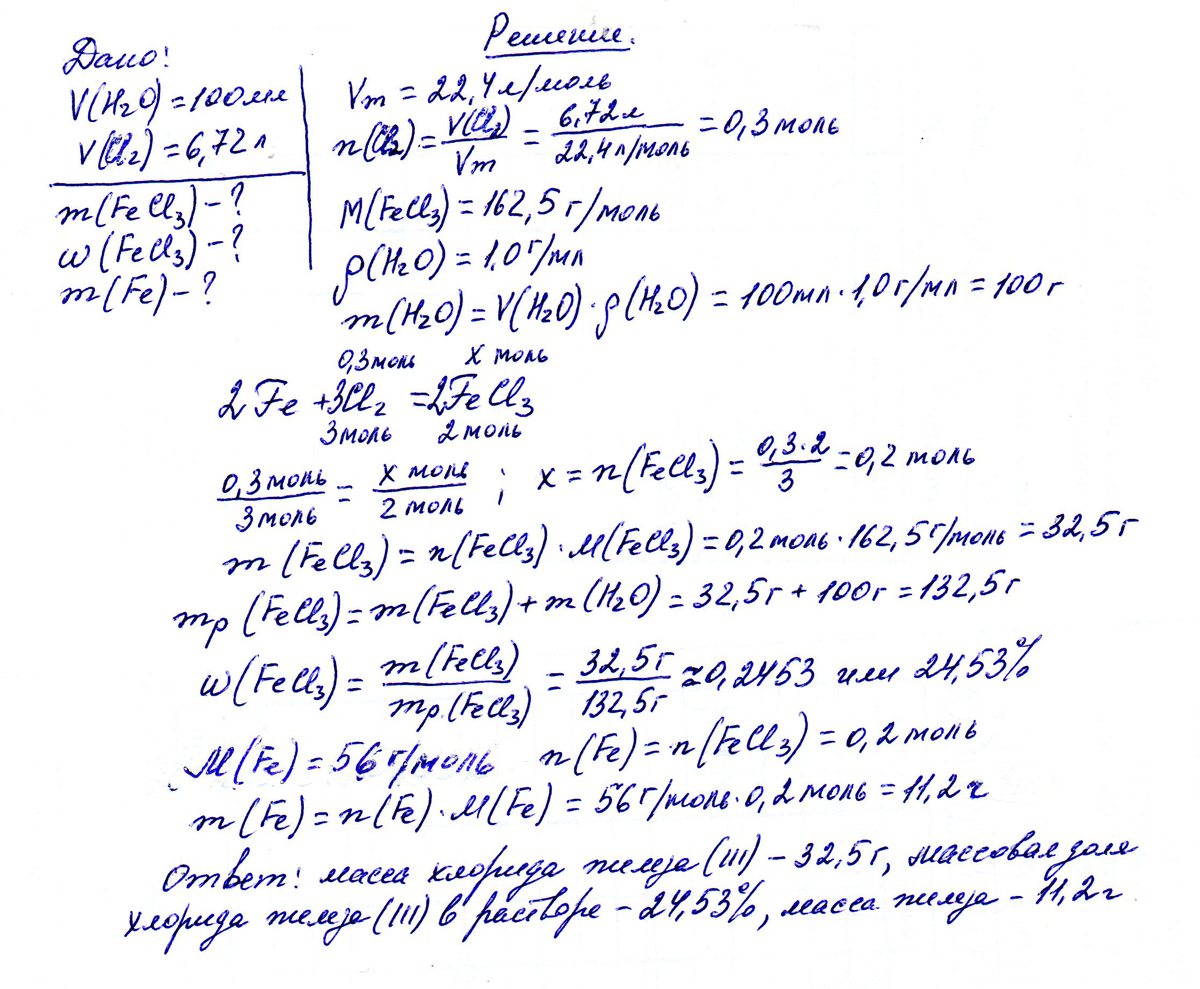 Решение.
Дано!
V(H2O) = 100мл
V(Cl2) = 6,72 л
m(FeCl3) - ?
w(FeCl3) - ?
m(Fe) - ?
Vm = 22,4 л/моль
n(Cl2) = V(Cl2)/Vm = 6,72 л/22,4 л/моль = 0,3 моль
M(FeCl3) = 162,5 г/моль
ρ(H2O) = 1,0 г/мл
m(H2O) = V(H2O) · ρ(H2O) = 100мл · 1,0 г/мл = 100 г
0,3 моль x моль
2Fe + 3Cl2 = 2FeCl3
3 моль 2 моль
0,3 моль/3 моль = x моль/2 моль ; x = n(FeCl3) = 0,3·2/3 = 0,2 моль
m(FeCl3) = n(FeCl3) · M(FeCl3) = 0,2 моль · 162,5 г/моль = 32,5 г
mp(FeCl3) = m(FeCl3) + m(H2O) = 32,5 г + 100 г = 132,5 г
w(FeCl3) = m(FeCl3)/mp.(FeCl3) = 32,5 г/132,5 г ≈ 0,2453 или 24,53%
M(Fe) = 56 г/моль n(Fe) = n(FeCl3) = 0,2 моль
m(Fe) = n(Fe) · M(Fe) = 56 г/моль · 0,2 моль = 11,2 г
Ответ! масса хлорида железа (III) - 32,5 г, массовая доля
хлорида железа (III) в растворе - 24,53%, масса железа - 11,2 г